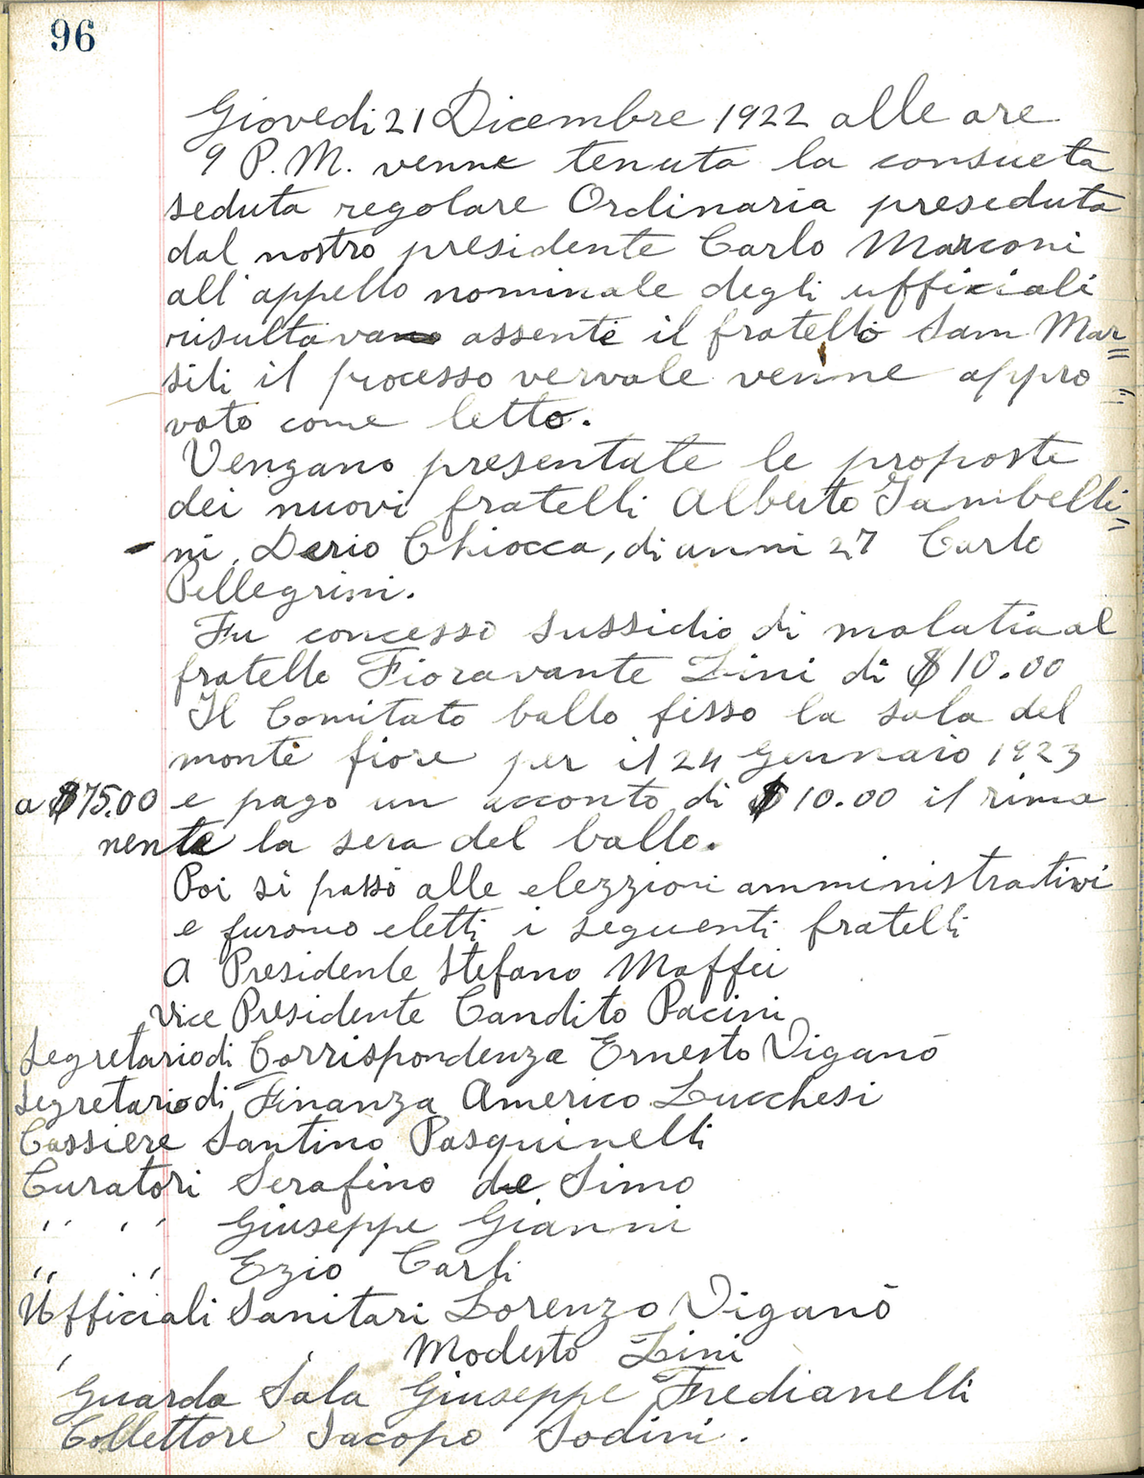 96
Giovedi 21 Dicembre 1922 alle ore
9 P.M. venne tenuta la consueta
seduta regolare Ordinaria preseduta
dal nostro presidente Carlo Marconi
all'appello nominale degli ufficiali
risultava assente il fratello Sam Mar=
sili il processo vervale venne appro=
vato come letto.
Vengano presentate le proposte
dei nuovi fratelli Alberto Gambelli=
ni, Dario Chiocca, di anni 27 Carlo
Pellegrini.
Fu concesso sussidio di malatia al
fratello Fioravante Lini di $10.00
Il Comitato ballo fisso la sala del
monte fiore per il 24 Gennaio 1923
a $75.00 e pago un acconto di $10.00 il rima
nente la sera del ballo.
Poi si passò alle elezzioni amministrativi
e furono eletti i seguenti fratelli
A Presidente Stefano Maffei
Vice Presidente Candito Pacini
Segretario di Corrispondenza Ernesto Viganò
Segretario di Finanza Americo Lucchesi
Cassiere Santino Pasquinelli
Curatori Serafino de Simo
" " Giuseppe Gianni
" " Ezio Carli
Ufficiali Sanitari Lorenzo Viganò
' ' Modesto Lini
Guarda Sala Giuseppe Fredianelli
Collettore Iacopo Sodini.